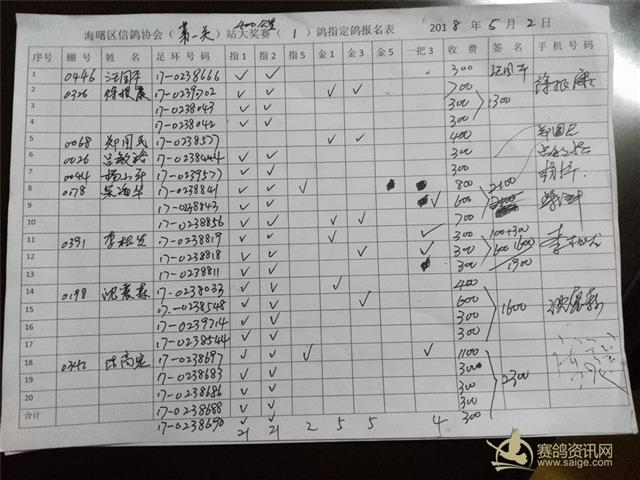 海曙区信鸽协会（第一关）站大奖赛（1）鸽指定鸽报名表 2018年5月2日
400公里
序号 棚号 姓名 足环号码 指1 指2 指5 金1 金3 金5 一把3 收费 签名 手机号码
1 0446 汪国平 17-0238666 ✓ ✓ 300 汪国平
2 0326 徐根康 17-0239702 ✓ ✓ ✓ ✓ 700 徐根康
3 17-0238043 ✓ ✓ 300 1300
4 17-0238042 ✓ ✓ 300
5 0068 郑国民 17-0238577 ✓ ✓ 400 郑国民
6 0026 17-0238444 ✓ ✓ 300
7 0044 杨小平 17-0239577 ✓ ✓ 300
8 0178 17-0238841 ✓ ✓ ✓ 800 2100
9 17-0238843 ✓ ✓ ✓ 600
10 17-0238856 ✓ ✓ ✓ ✓ 700
11 0391 17-0238819 ✓ ✓ ✓ ✓ 300 100+300
12 17-0238818 ✓ ✓ ✓ ✓ 300 400 1600
13 17-0278811 ✓ ✓ 300 1900
14 0198 17-0238033 ✓ ✓ ✓ 400
15 17-0238548 ✓ ✓ ✓ 600 1600
16 17-0239714 ✓ ✓ 300
17 17-0238544 ✓ ✓ 300
18 0342 17-0238697 ✓ ✓ ✓ ✓ 1100
19 17-0238683 ✓ ✓ 300
20 17-0238686 ✓ ✓ 300 2300
合计 17-0238688 ✓ ✓ 300
17-0238690 ✓ ✓ 300
21 21 2 5 5 4
赛鸽资讯网
www.saige.com